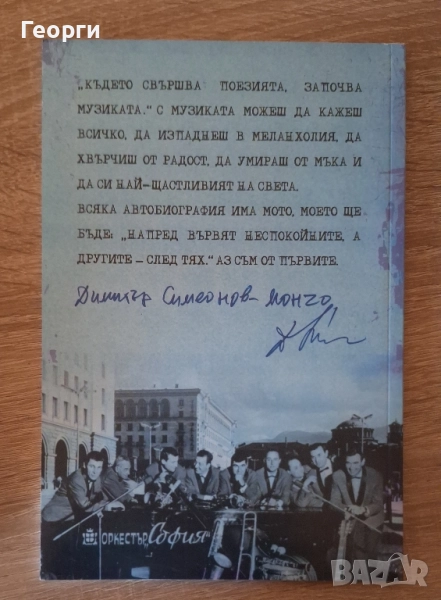 Георги
„КЪДЕТО СВЪРШВА ПОЕЗИЯТА, ЗАПОЧВА
МУЗИКАТА.“ С МУЗИКАТА МОЖЕШ ДА КАЖЕШ
ВСИЧКО, ДА ИЗПАДНЕШ В МЕЛАНХОЛИЯ, ДА
ХВЪРЧИШ ОТ РАДОСТ, ДА УМИРАШ ОТ МЪКА И
ДА СИ НАЙ-ЩАСТЛИВИЯТ НА СВЕТА.
ВСЯКА АВТОБИОГРАФИЯ ИМА МОТО, МОЕТО ЩЕ
БЪДЕ: „НАПРЕД ВЪРВЯТ НЕСПОКОЙНИТЕ, А
ДРУГИТЕ – СЛЕД ТЯХ.“ АЗ СЪМ ОТ ПЪРВИТЕ.
Димитър Симеонов - Мончо
ОРКЕСТЪР СОФИЯ
BAZAR.bg